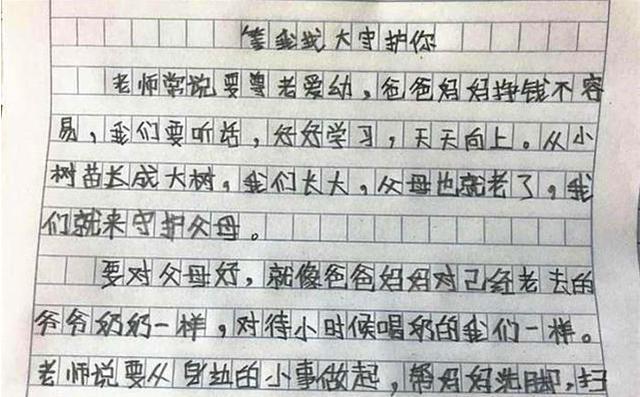 等我大守护你
老师常说要尊老爱幼，爸爸妈妈挣钱不容
易，我们要听话，好好学习，天天向上。从小
树苗长成大树，我们长大，父母也就老了，我
们就来守护父母。
要对父母好，就像爸爸妈妈对己经老去的
爷爷奶奶一样，对待小时候喝奶的我们一样。
老师说要从身边的小事做起，帮妈妈洗脚，扫